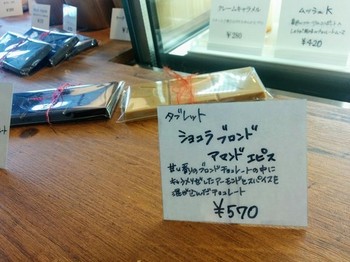 クレームキャラメル
¥280
¥420
タブレット
ショコラ ブロンド
アマンド エピス
甘い香りのブロンドチョコレートの中に
キャラメリゼしたアーモンドとスパイスを
混ぜ込んだチョコレート
¥570